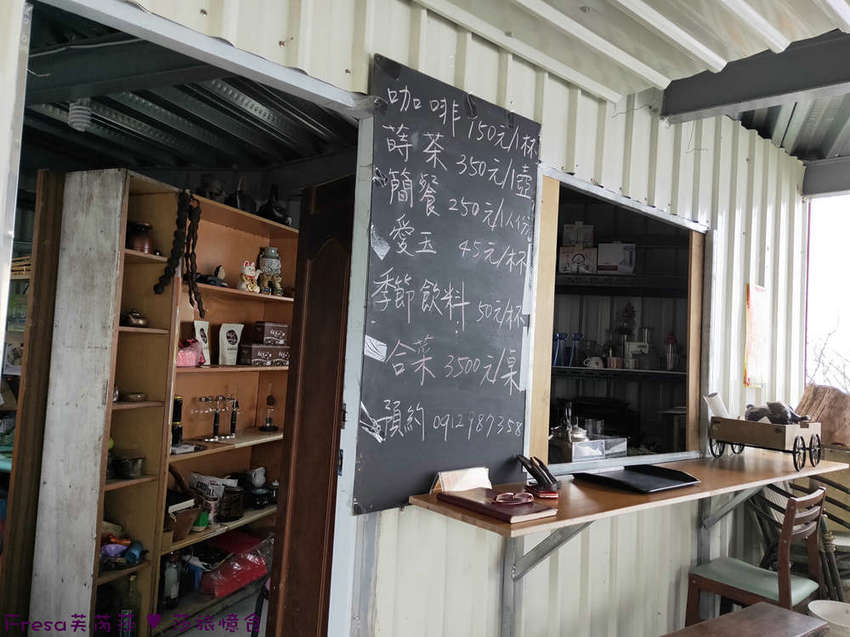 咖啡 150元/杯
蒔茶 350元/壺
簡餐 250元/1人份
愛玉 45元/杯
季節飲料 50元/杯
合菜 3500元/桌
預約 0912987358
Fresa芙芮莎♥莎旅憶食